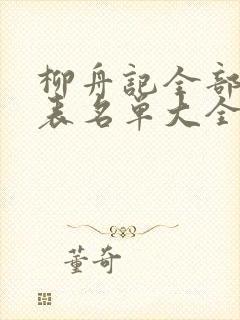 柳舟記全部
表名單大全
董奇